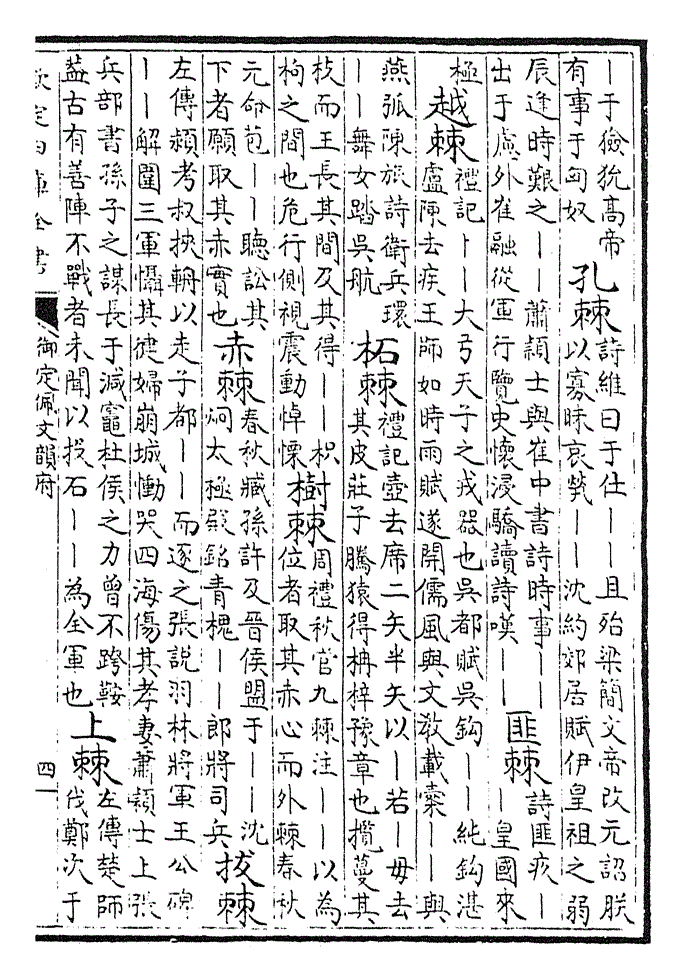 ｜于獫狁高帝
有事于匈奴
孔棘
詩維曰于仕｜｜且殆梁簡文帝改元詔朕
以寡昧哀煢｜｜沈約郊居賦伊皇祖之弱
辰逢時艱之｜｜蕭穎士與崔中書詩時事｜｜
出于慮外崔融從軍行覽史懷浸驕讀詩嘆｜｜
匪棘
詩匪疚｜
｜皇國來
極
越棘
禮記｜｜大弓天子之戎器也吳都賦吳鈎｜｜純鈎湛
盧陳去疾王師如時雨賦遂開儒風與文敎載櫜｜｜與
燕弧陳旅詩衛兵環
｜｜舞女踏吳航
柘棘
禮記壺去席二矢半矢以｜若｜毋去
其皮莊子騰猿得柟梓豫章也攬蔓其
枝而王長其間及其得｜｜枳
枸之間也危行側視震動悼慄
樹棘
周禮秋官九棘注｜｜以為
位者取其赤心而外棘春秋
元命苞｜｜聽訟其
下者願取其赤實也
赤棘
春秋臧孫許及晉侯盟于｜｜沈
炯太極殿銘青槐｜｜郎將司兵
拔棘
左傳潁考叔挾輈以走子都｜｜而逐之張說羽林將軍王公碑
｜｜解圍三軍懾其徤婦崩城慟哭四海傷其孝妻蕭穎士上張
兵部書孫子之謀長于減竈杜侯之力曾不跨鞍
葢古有善陣不戰者未聞以投石｜｜為全軍也
上棘
左傳楚師
伐鄭次于
欽定四庫全書
御定佩文韻府
四一